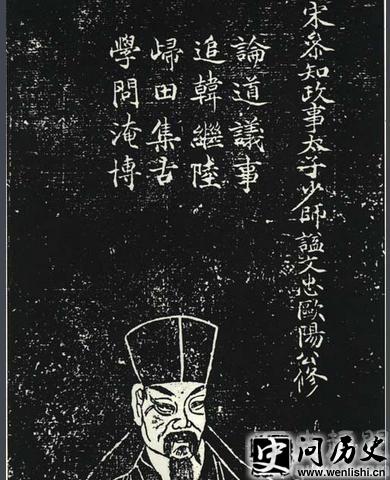 宋叅知政事太子少師諡文忠歐陽公修
論道議事
追韓繼陸
歸田集古
學問淹博
史问历史
www.wenlishi.cn